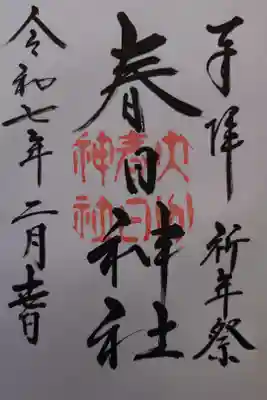 奉拝 祈年祭
春日神社
春日
神社
令和七年二月吉日